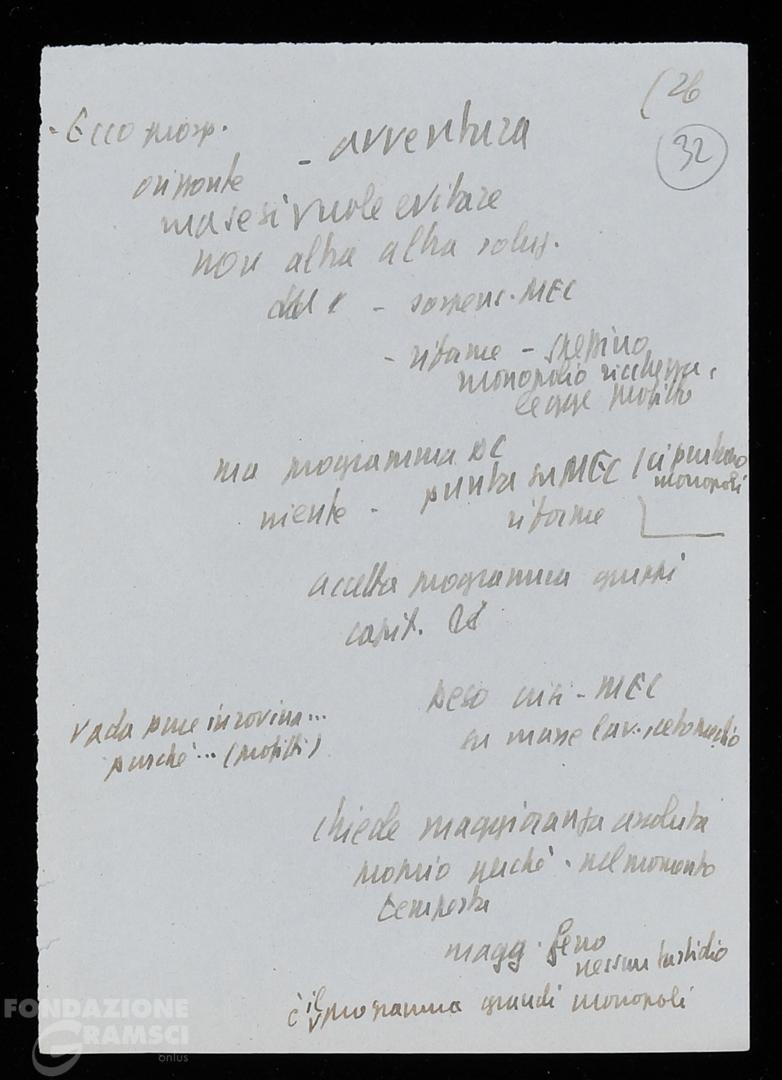 (26
32
- Ecco prosp. - avventura
orizzonte
ma se si vuole evitare
non altra altra soluz.
- sospens. MEC
- riforme - spezzino
monopolio ricchezza,
legge profitto
ma programma DC
niente - punta su MEC / ci portano
monopoli
riforme
accetta programma gruppi
capit.
peso crisi - MEC
su masse lav. ceto medio
vada pure in rovina...
purché... (profitti)
chiede maggioranza assoluta
proprio perché - nel momento
tempesta
magg. freno
nessun fastidio
è il programma grandi monopoli
FONDAZIONE
GRAMSCI
onlus